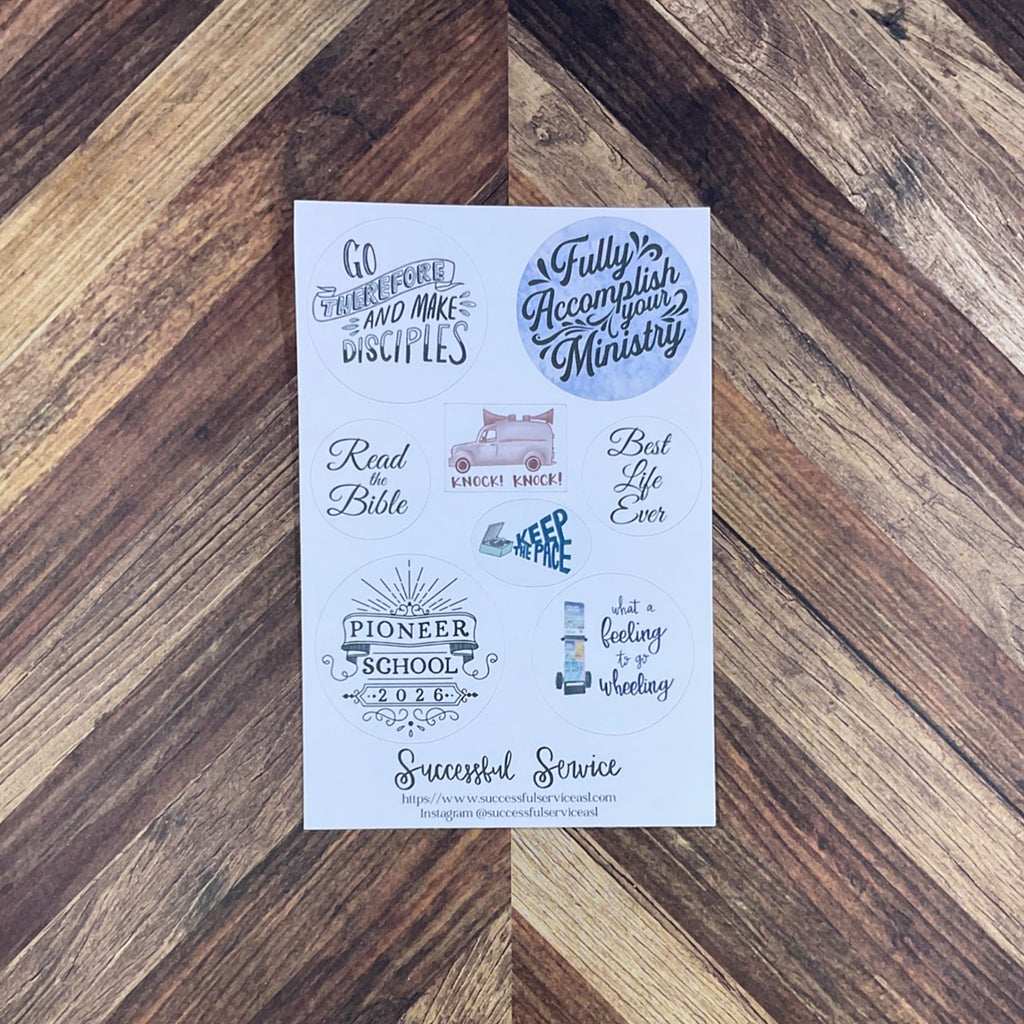 GO
THEREFORE
AND MAKE
DISCIPLES
Fully
Accomplish
your
Ministry
Read
the
Bible
KNOCK! KNOCK!
Best
Life
Ever
KEEP
THE PACE
PIONEER
SCHOOL
2026
what a
feeling
to go
wheeling
Successful Service
https://www.successfulserviceasl.com
Instagram @successfulserviceasl